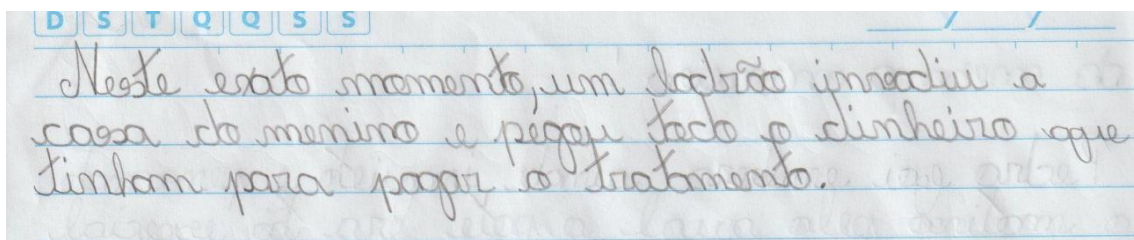 D S T Q Q S S / /
Neste exato momento, um ladrão invadiu a
casa do menino e pegou todo o dinheiro que
tinham para pagar o tratamento.